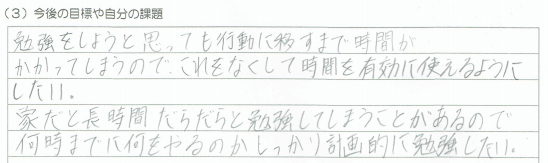 (3) 今後の目標や自分の課題
勉強をしようと思っても行動に移すまで時間が
かかってしまうので、これをなくして時間を有効に使えるように
したい。
家だと長時間だらだらと勉強してしまうことがあるので
何時までに何をやるのかしっかり計画的に勉強したい。